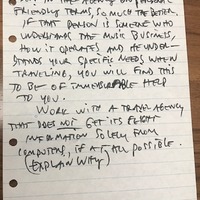 FRIENDLY TERMS, SO MUCH THE BETTER,
IF THAT PERSON IS SOMEONE WHO
UNDERSTANDS THE MUSIC BUSINESS,
HOW IT OPERATES AND HE UNDER-
STANDS YOUR SPECIFIC NEEDS WHEN
TRAVELING, YOU WILL FIND THIS
TO BE OF IMMEASURABLE HELP
TO YOU.
WORK WITH A TRAVEL AGENCY
THAT DOES NOT GET ITS FLIGHT
INFORMATION SOLELY FROM
COMPUTERS, IF AT ALL POSSIBLE.
(EXPLAIN WHY)